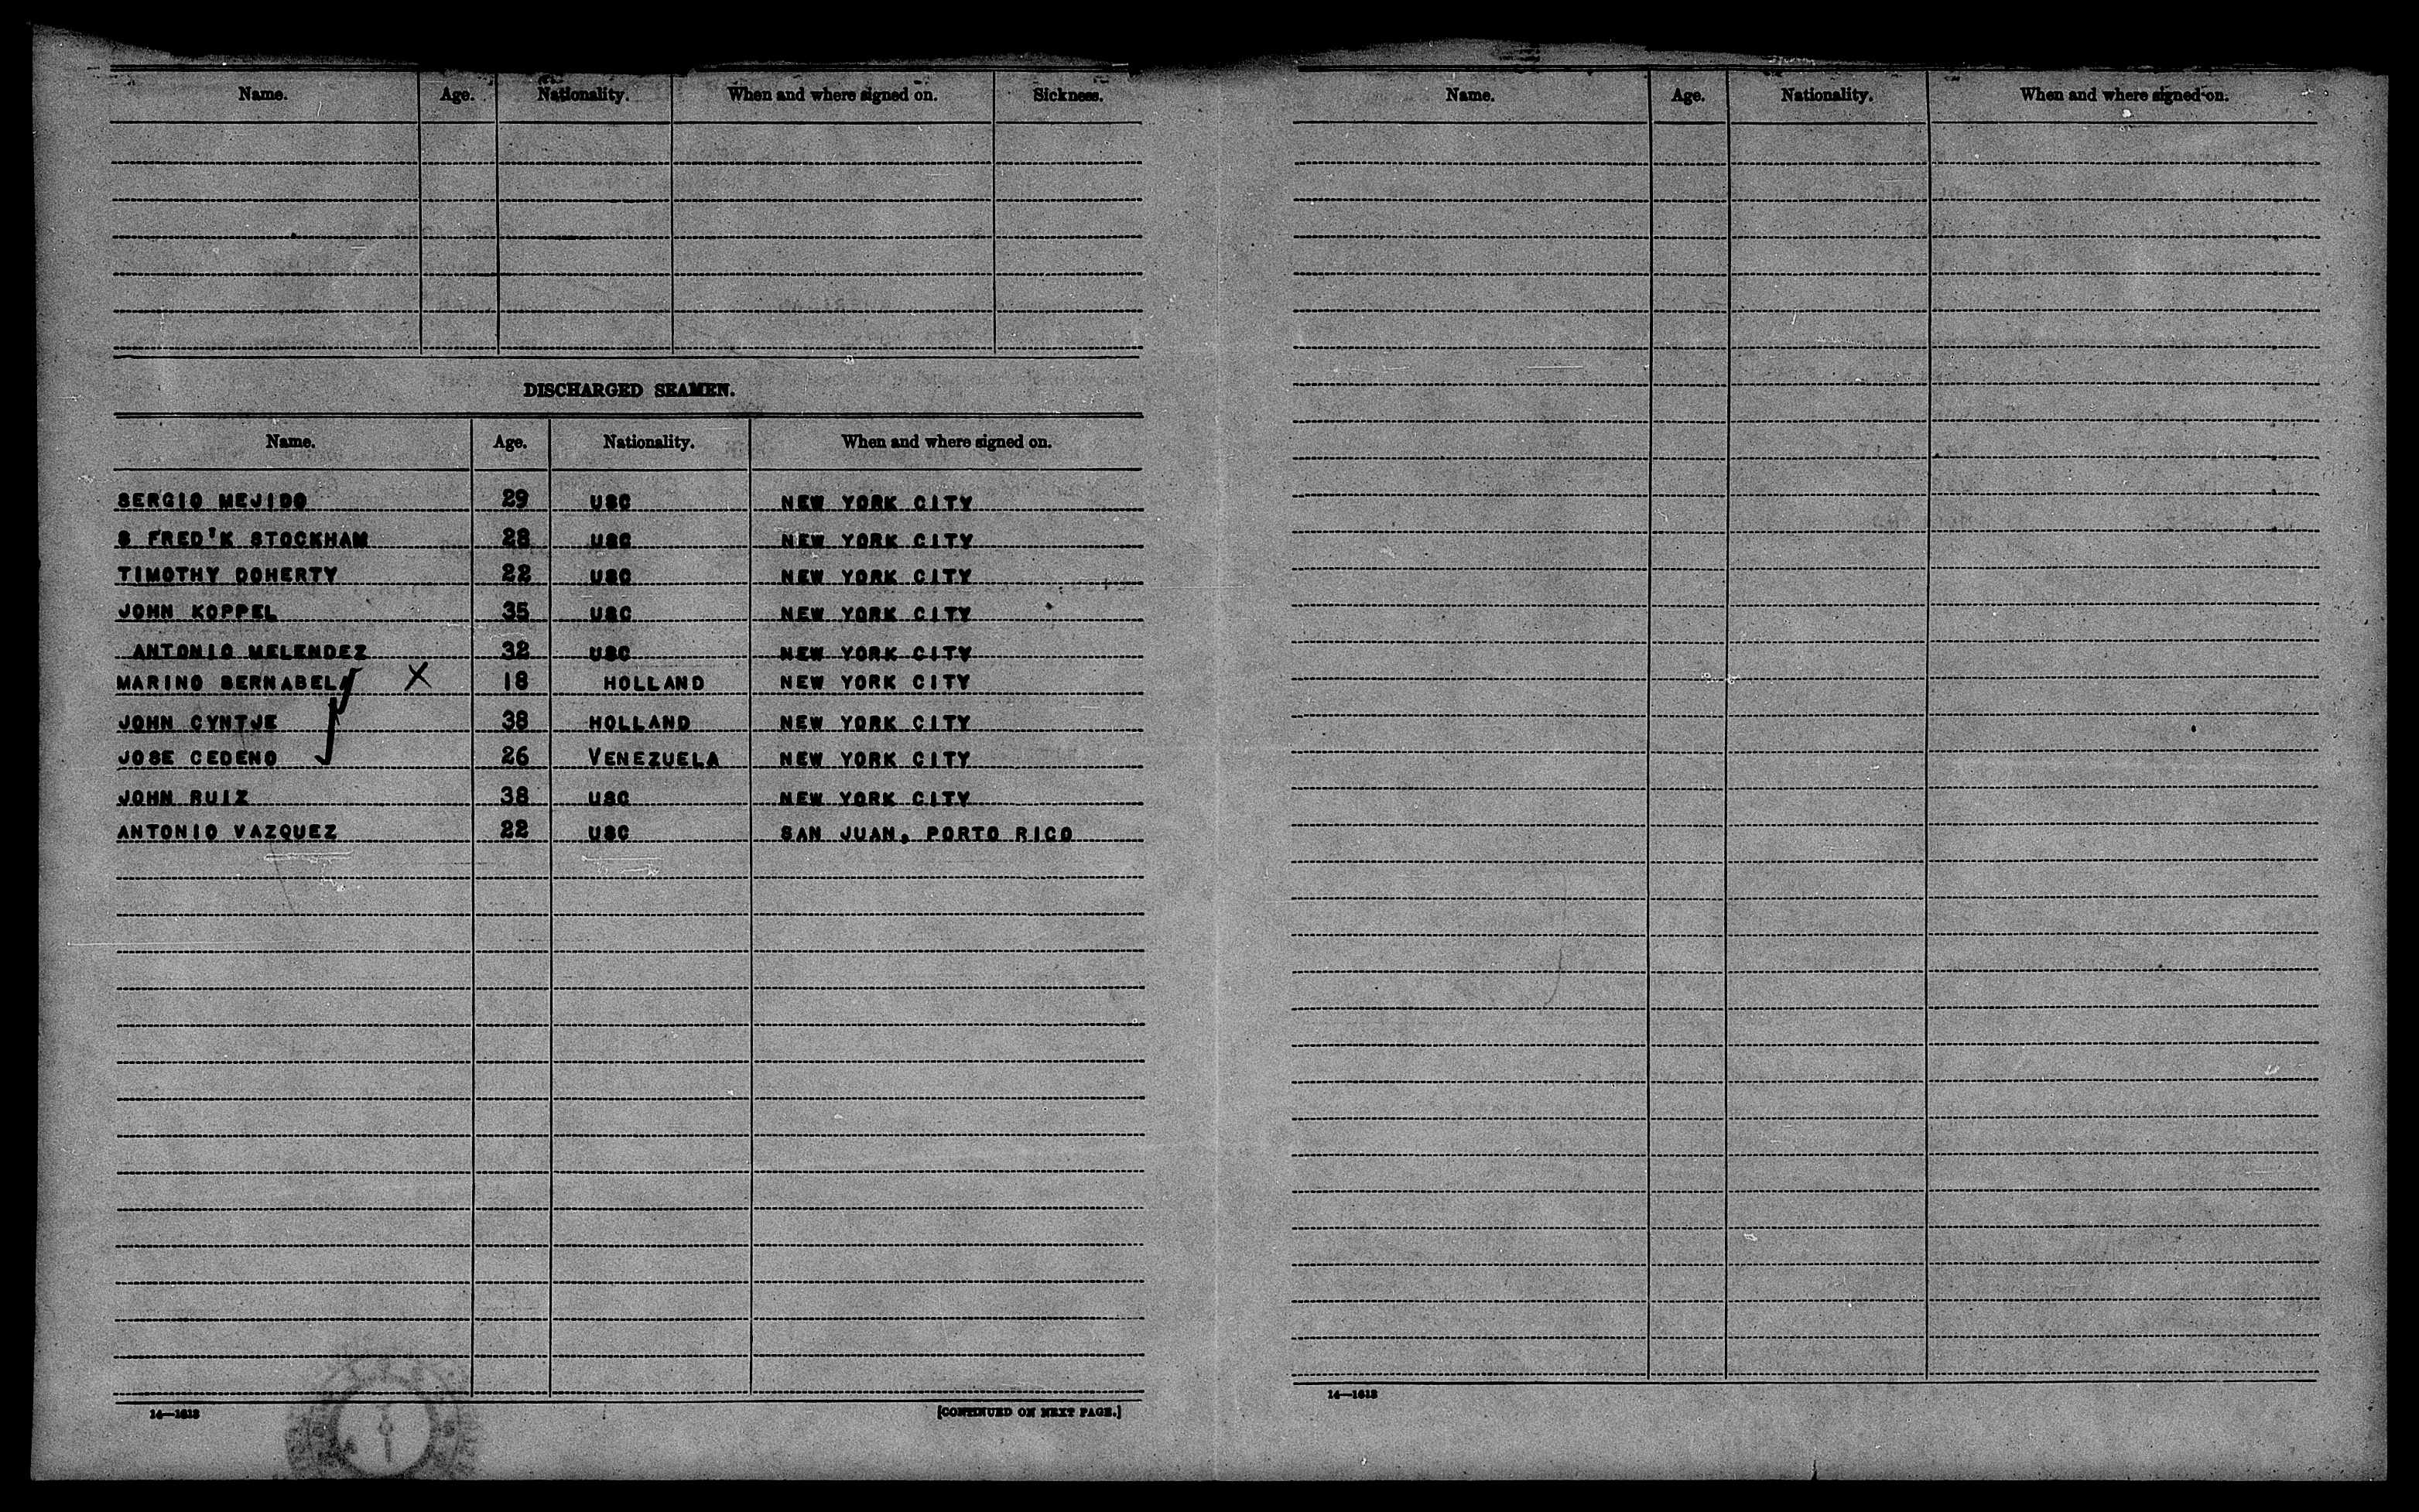 Name. Age. Nationality. When and where signed on. Sickness.
DISCHARGED SEAMEN.
Name. Age. Nationality. When and where signed on.
SERGIO MEJIDO 29 USC NEW YORK CITY
S FRED'K STOCKHAM 28 USC NEW YORK CITY
TIMOTHY DOHERTY 22 USC NEW YORK CITY
JOHN KOPPEL 35 USC NEW YORK CITY
ANTONIO MELENDEZ 32 USC NEW YORK CITY
MARINO BERNABELA X 18 HOLLAND NEW YORK CITY
JOHN CYNTJE 38 HOLLAND NEW YORK CITY
JOSE CEDENO 26 VENEZUELA NEW YORK CITY
JOHN RUIZ 38 USC NEW YORK CITY
ANTONIO VAZQUEZ 22 USC SAN JUAN, PORTO RICO
14—1613 [CONTINUED ON NEXT PAGE.]
Name. Age. Nationality. When and where signed on.
14—1613